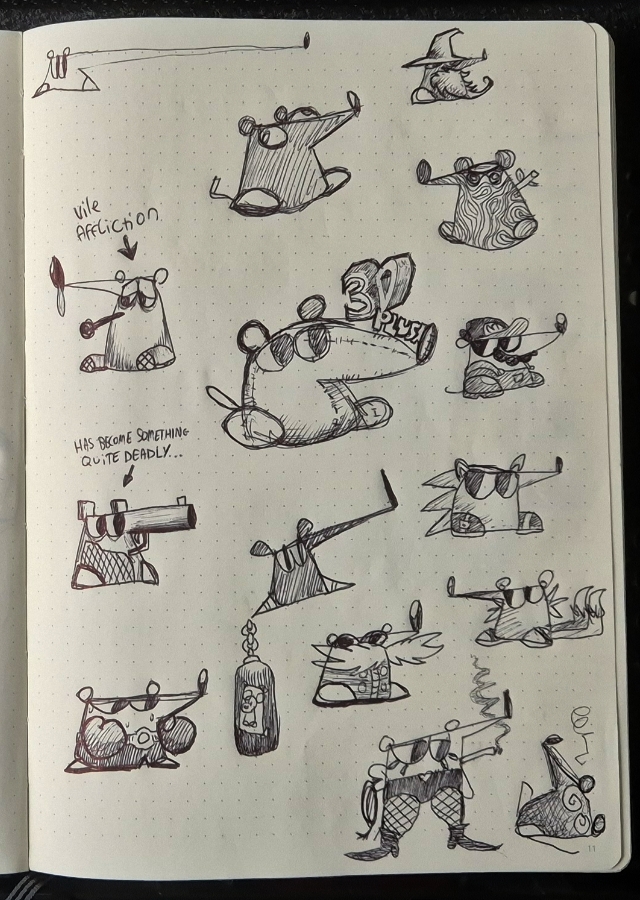 Vile
Affliction
3D
PLUS!
HAS BECOME SOMETHING
QUITE DEADLY...
11